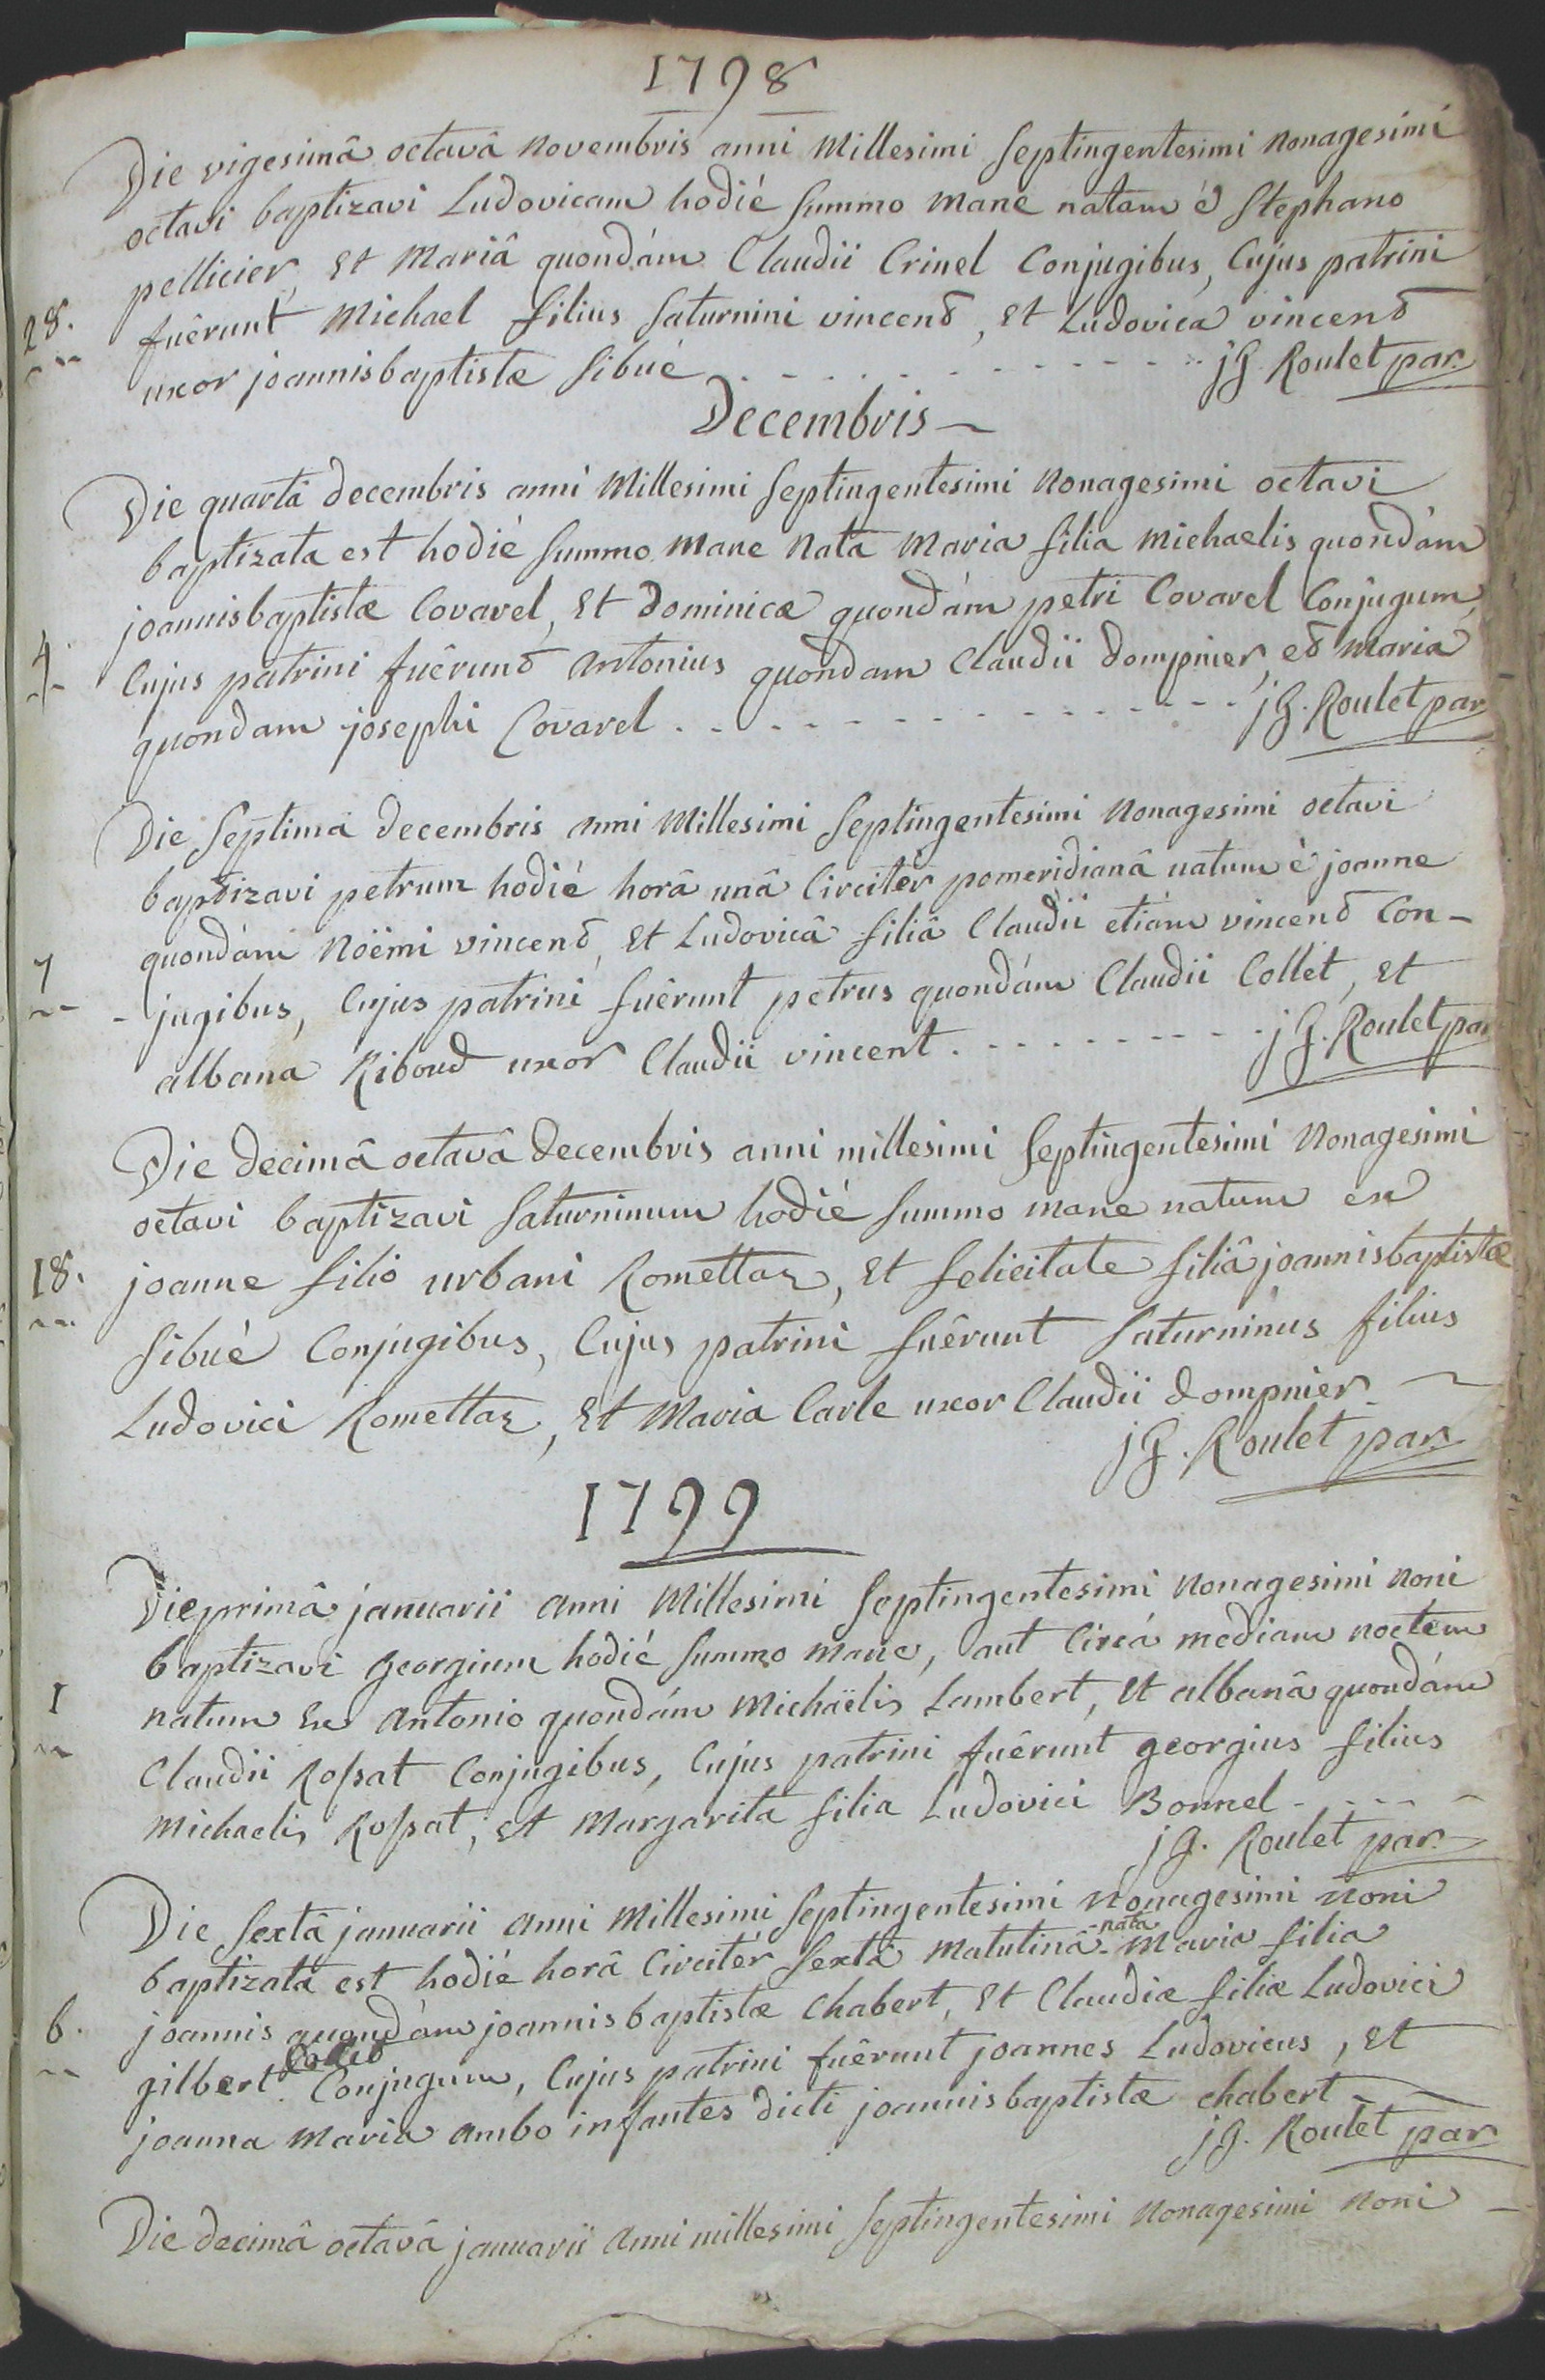 1798
Die vigesimâ octavâ novembris anni Millesimi Septingentesimi nonagesimi
octavi baptizavi Ludovicam hodié Summo Mane natam é Stephano
pellicier, Et Mariâ quondám Claudii Crinel Conjugibus, Cujus patrini
28.
fuêrunt Michael filius Saturnini vincend, Et Ludovica vincend
uxor joannisbaptistæ Sibué - - - - - - - - - - - jG. Roulet par.
Decembris
Die quartâ decembris anni Millesimi Septingentesimi Nonagesimi octavi
baptizata est hodié Summo Mane Nata Maria filia Michaelis quondám
joannisbaptistæ Covarel, Et Dominicæ quondám petri Covarel Conjugum,
4.
Cujus patrini fuêrund Antonius quondam Claudii Dompnier, ed Maria
quondam josephi Covarel . - - - - - - - - - - - jG. Roulet par
Die Septimâ decembris Anni Millesimi Septingentesimi Nonagesimi octavi
baptizavi petrum hodié horâ unâ Circitér pomeridianâ natum è joanne
quondám Nöëmi vincend, Et Ludovicâ filiâ Claudii etiám vincend Con-
7
- jugibus, Cujus patrini fuêrunt petrus quondám Claudii Collet, Et
albana Riboud uxor Claudii vincent . - - - - - - - - jG. Roulet par
Die decimâ octavâ decembris anni millesimi Septingentesimi Nonagesimi
octavi baptizavi Saturninum hodié Summo mane natum ex
18.
joanne filio urbani Romettaz, Et felicitate filiâ joannisbaptistæ
Sibué Conjugibus, Cujus patrini fuêrunt Saturninus filius
Ludovici Romettaz, Et Maria Carle uxor Claudii Dompnier
jG. Roulet par.
1799
Die primâ januarii Anni Millesimi Septingentesimi Nonagesimi Noni
baptizavi Georgium hodié Summo Mane, aut Circá mediam noctem
1
natum Ex Antonio quondám Michaëlis Lambert, Et albanâ quondám
Claudii Rossat Conjugibus, Cujus patrini fuêrunt georgius filius
Michaelis Rossat, Et Margarita filia Ludovici Bonnel - - - -
jG. Roulet par.
Die Sextâ januarii Anni Millesimi Septingentesimi Nonagesimi Noni
baptizata est hodié horâ Circitér Sextâ Matutinâ -nata- Maria filia
6.
joannis quondám joannisbaptistæ Chabert, Et Claudiæ filiæ Ludovici
gilbert Conjugum, Cujus patrini fuêrunt joannes Ludovicus, Et
joanna Maria Ambo infantes dicti joannisbaptistæ chabert
jG. Roulet par
Die decimâ octavâ januarii Anni millesimi Septingentesimi Nonagesimi Noni -